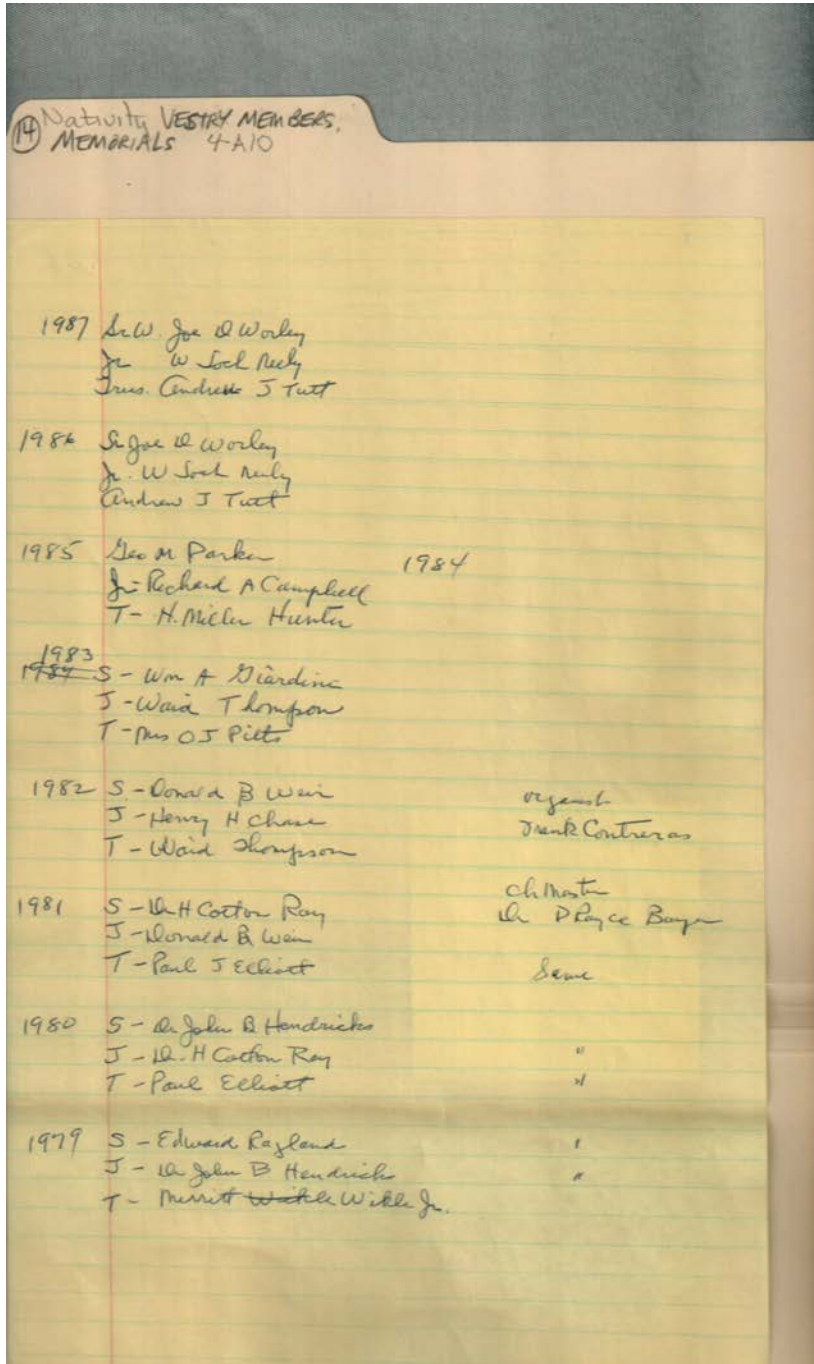 14 Nativity VESTRY MEMBERS,
MEMORIALS 4-A10
1987 Sr W. Joe D Worley
Jr W Jack Neely
Treas. Andrew J Tutt
1986 Sr Joe D Worley
Jr. W Jack Neely
Andrew J Tutt
1985 Geo M Parker 1984
Jr- Richard A Campbell
T- H. Miller Hunter
1983
1984 S - Wm A Giardina
J - Waid Thompson
T - Mrs O J Pitts
1982 S - Donald B Weir organist
J - Henry H Chase Frank Contreras
T - Waid Thompson
Ch Master
1981 S - Dr H Cotton Ray Dr P Royce
J - Donald B Weir
T - Paul J Elliott Same
1980 S - Dr John B Hendricks
J - Dr. H Cotton Ray "
T - Paul Elliott "
1979 S - Edward Ragland "
J - Dr John B Hendricks "
T - Merritt Wikle Jr.